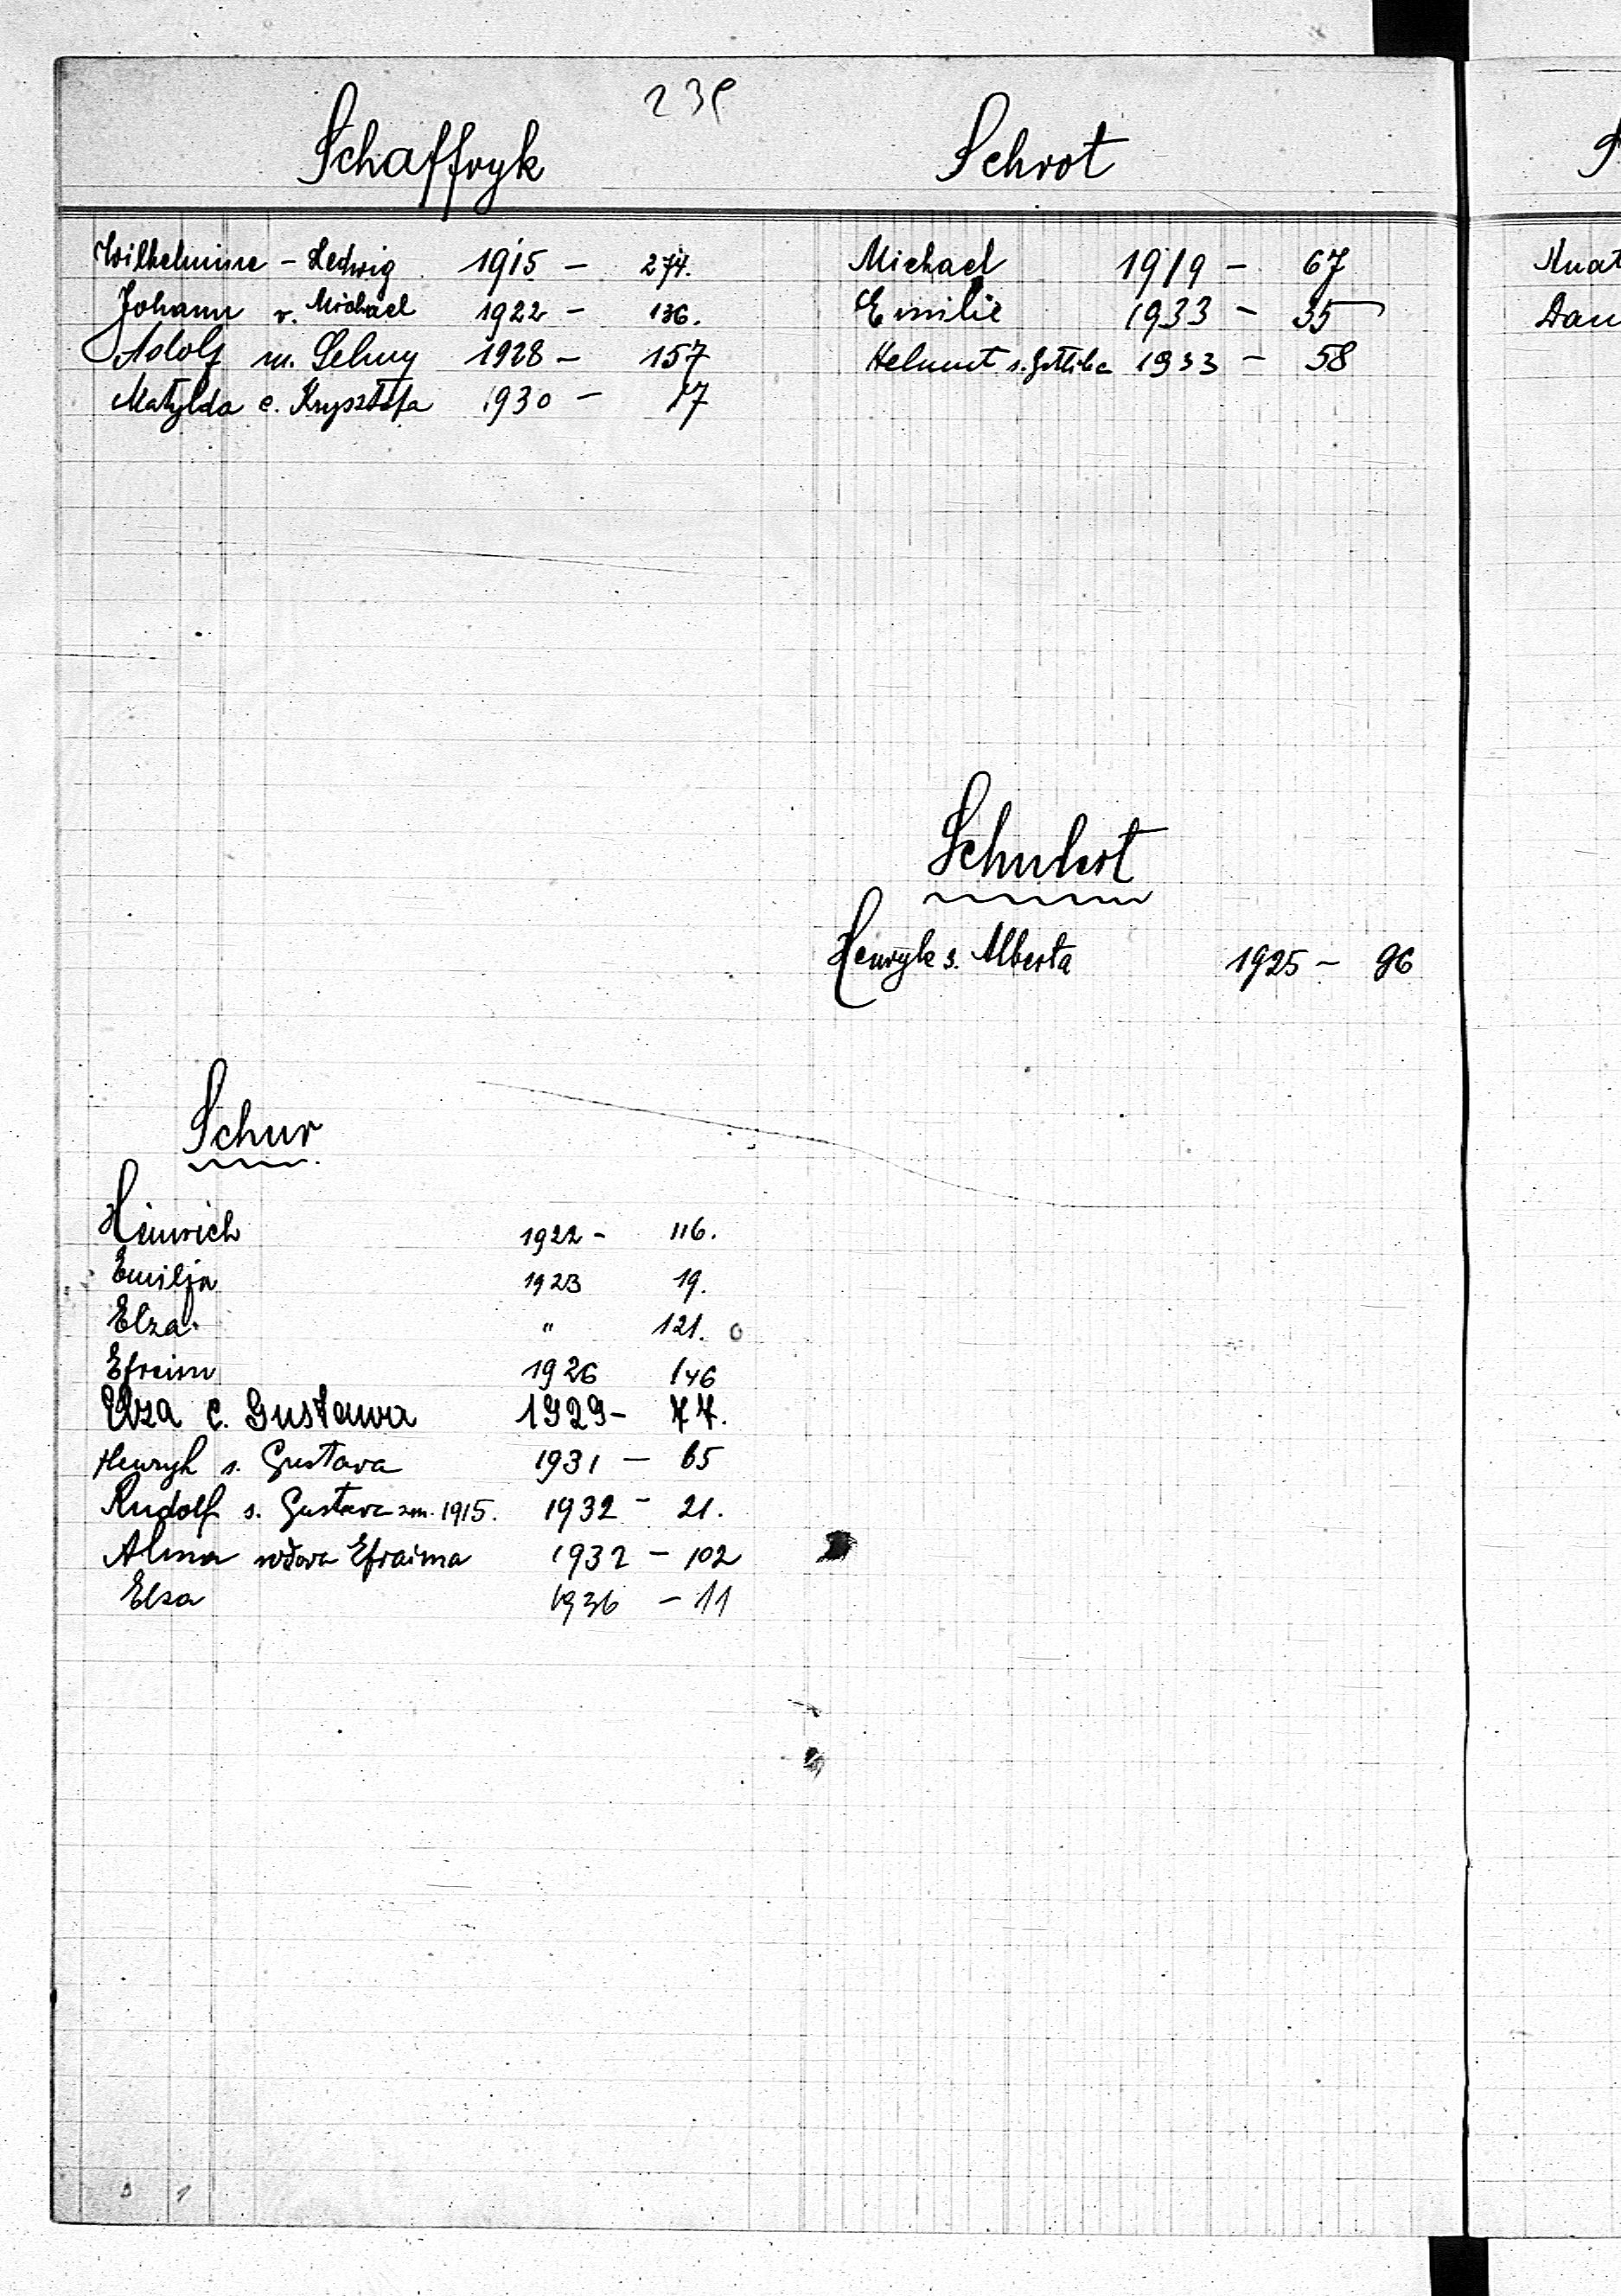 23
Schaffryk
Wilhelmine - Hedwig 1915 - 274.
Johann v. Michael 1922 - 136.
Adolf m. Selmy 1928 - 157
Matylda c. Krysztofa 1930 - 17
Schrot
Michael 1919 - 67
Emilie 1933 - 35
Helmut s. Gottliba 1933 - 58
Schubert
Henryk s. Alberta 1925 - 96
Schur
Heinrich 1922 - 116.
Emilja 1923 19.
Elza " 121.
Efraim 1926 146
Elza c. Gustawa 1929 - 77.
Henryk s. Gustava 1931 - 65
Rudolf s. Gustava zm. 1915. 1932 - 21.
Alma wdova Efraima 1932 - 102
Elsa 1936 - 11